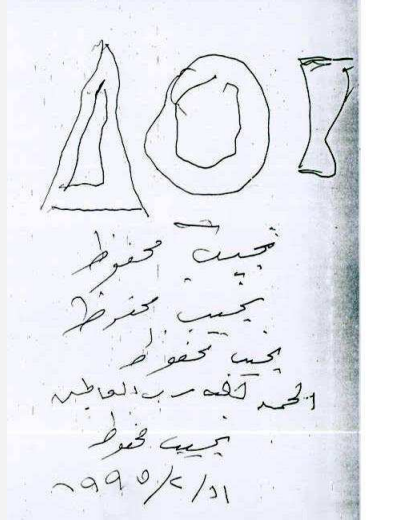 نجيب محفوظ
نجيب محفوظ
نجيب محفوظ
الحمد لله رب العالمين
نجيب محفوظ